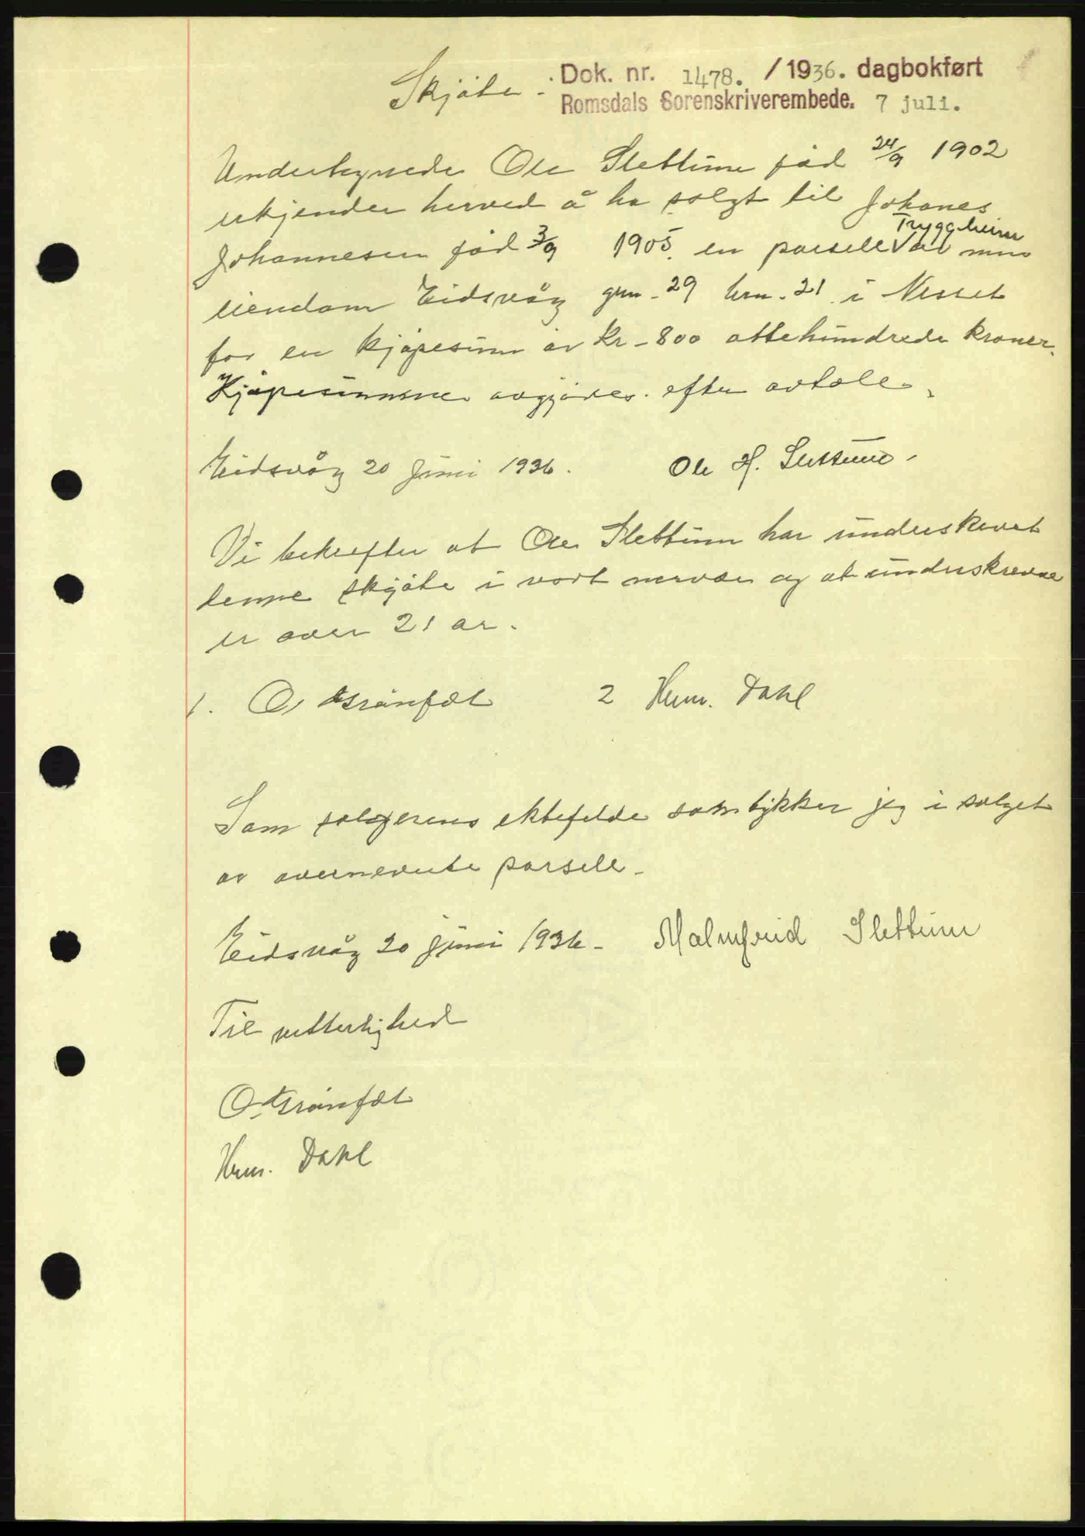 Skjøte -
Dok. nr. 1478. /1936. dagbokført
Romsdals Sorenskriverembede. 7 juli.
Undertegnede Ole Slettum fød 24/9 1902
erkjender herved å ha solgt til Johanes
Johannesen fød 3/9 1905. en parsell Tryggheim av min
eiendom Eidsvåg grn. 29 brn. 21 i Nesset
for en kjøpesum av kr - 800 attehundrede kroner.
Kjøpesummen avgjøres efter avtale.
Eidsvåg 20 Juni 1936. Ole H. Slettum.
Vi bekrefter at Ole Slettum har underskrevet
denne skjøte i vort nervær og at underskrevne
er over 21 ar.
1. O. Grønfæt 2 Herm. Dahl
Som selgerens ektefelde samtykker jeg i salget
av overnevnte parsell.
Eidsvåg 20 juni 1936 - Malmfrid Slettum
Til vitterlighed
O. Grønfæt
Herm. Dahl